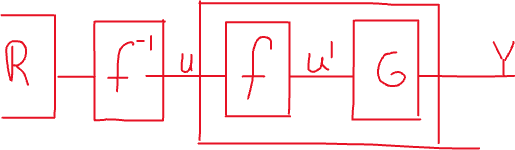 R f⁻¹ u f u' G Y